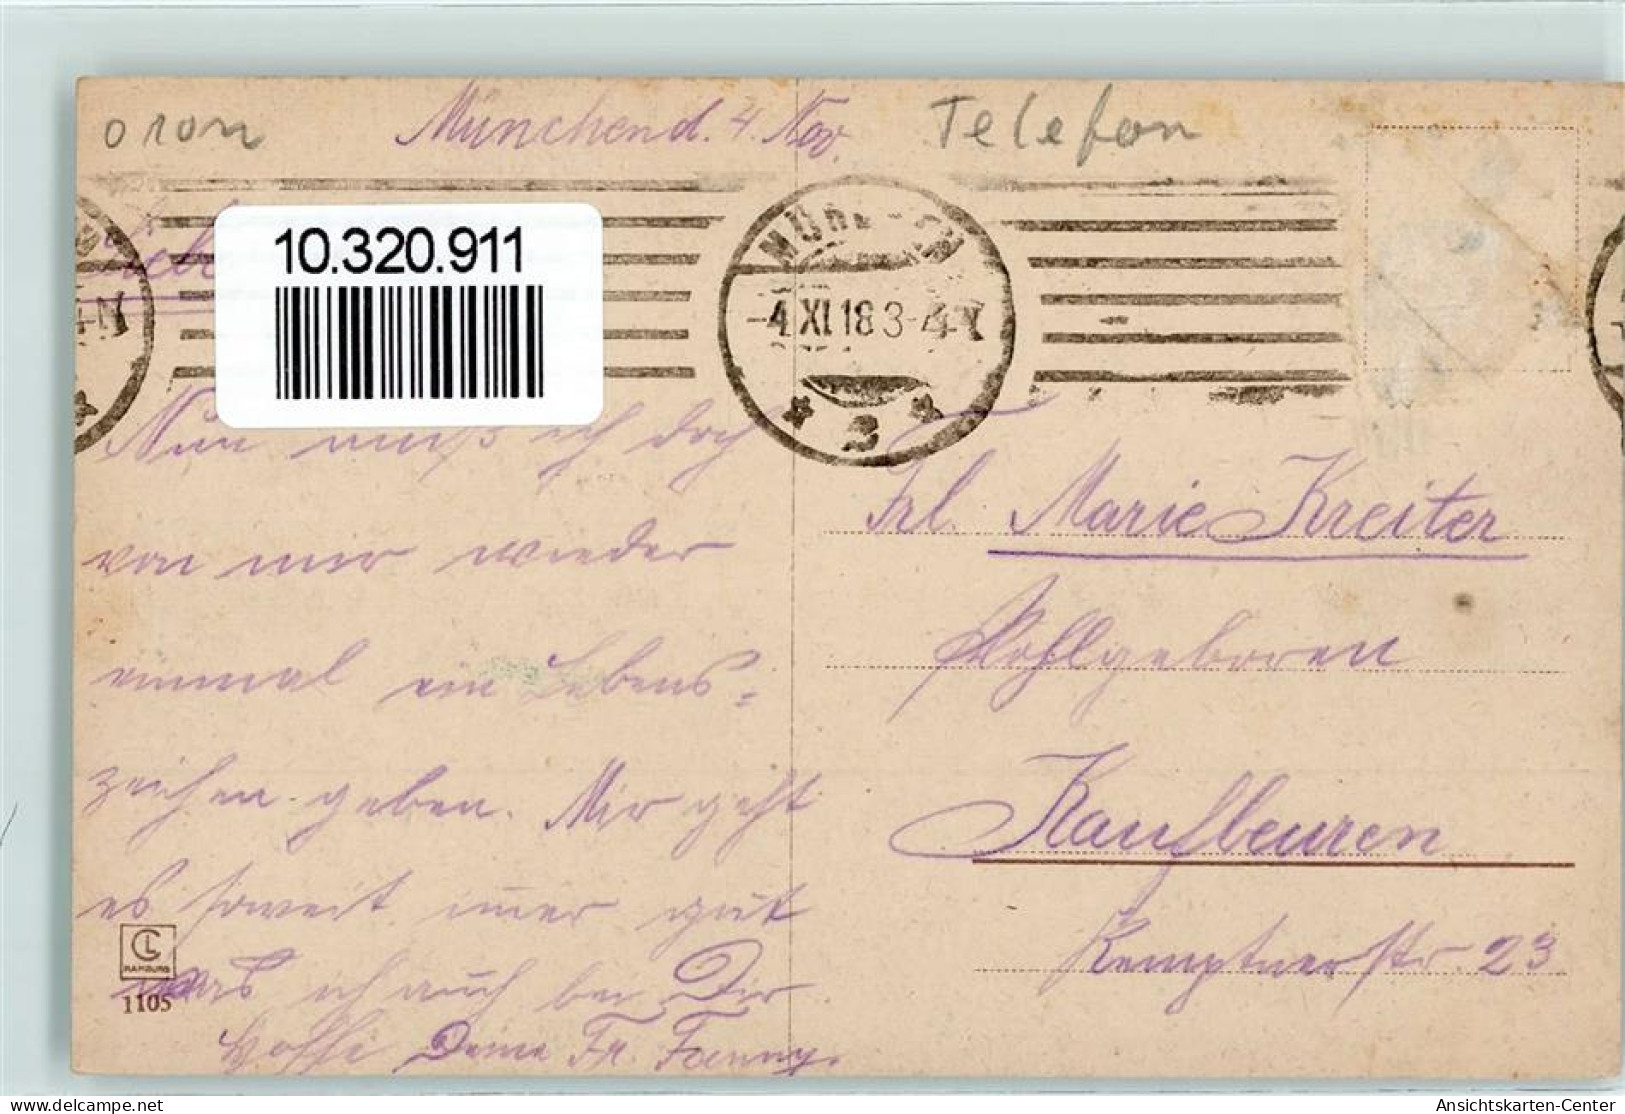 010m
München d. 4. Nov.
Telefon
10.320.911
MÜN CH
-4 XI 18 3-4 N
2
Nun muß ich doch
von mir wieder
einmal ein Lebens=
zeichen geben. Mir geht
es soweit immer gut
was ich auch bei Dir
hoffe Deine Fr. Fanny.
Frl. Marie Kreiter
Wohlgeboren
Kaufbeuren
Kemptnerstr. 23
CL
HAMBURG
1105
Ansichtskarten-Center
delcampe.net